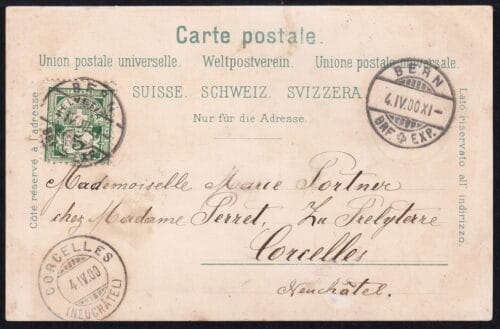 Carte postale.
Union postale universelle. Weltpostverein. Unione postale universale.
SUISSE. SCHWEIZ. SVIZZERA.
Nur für die Adresse.
Côté réservé à l'adresse.
Lato riservato all' indirizzo.
HELVETIA
5
BERN
BRF. EXP.
BERN
4.IV.00 XI-
BRF. EXP.
Mademoiselle Marie Portner
chez Madame Perret,
Corcelles
Neuchâtel.
CORCELLES
4.IV.00
(NEUCHÂTEL)